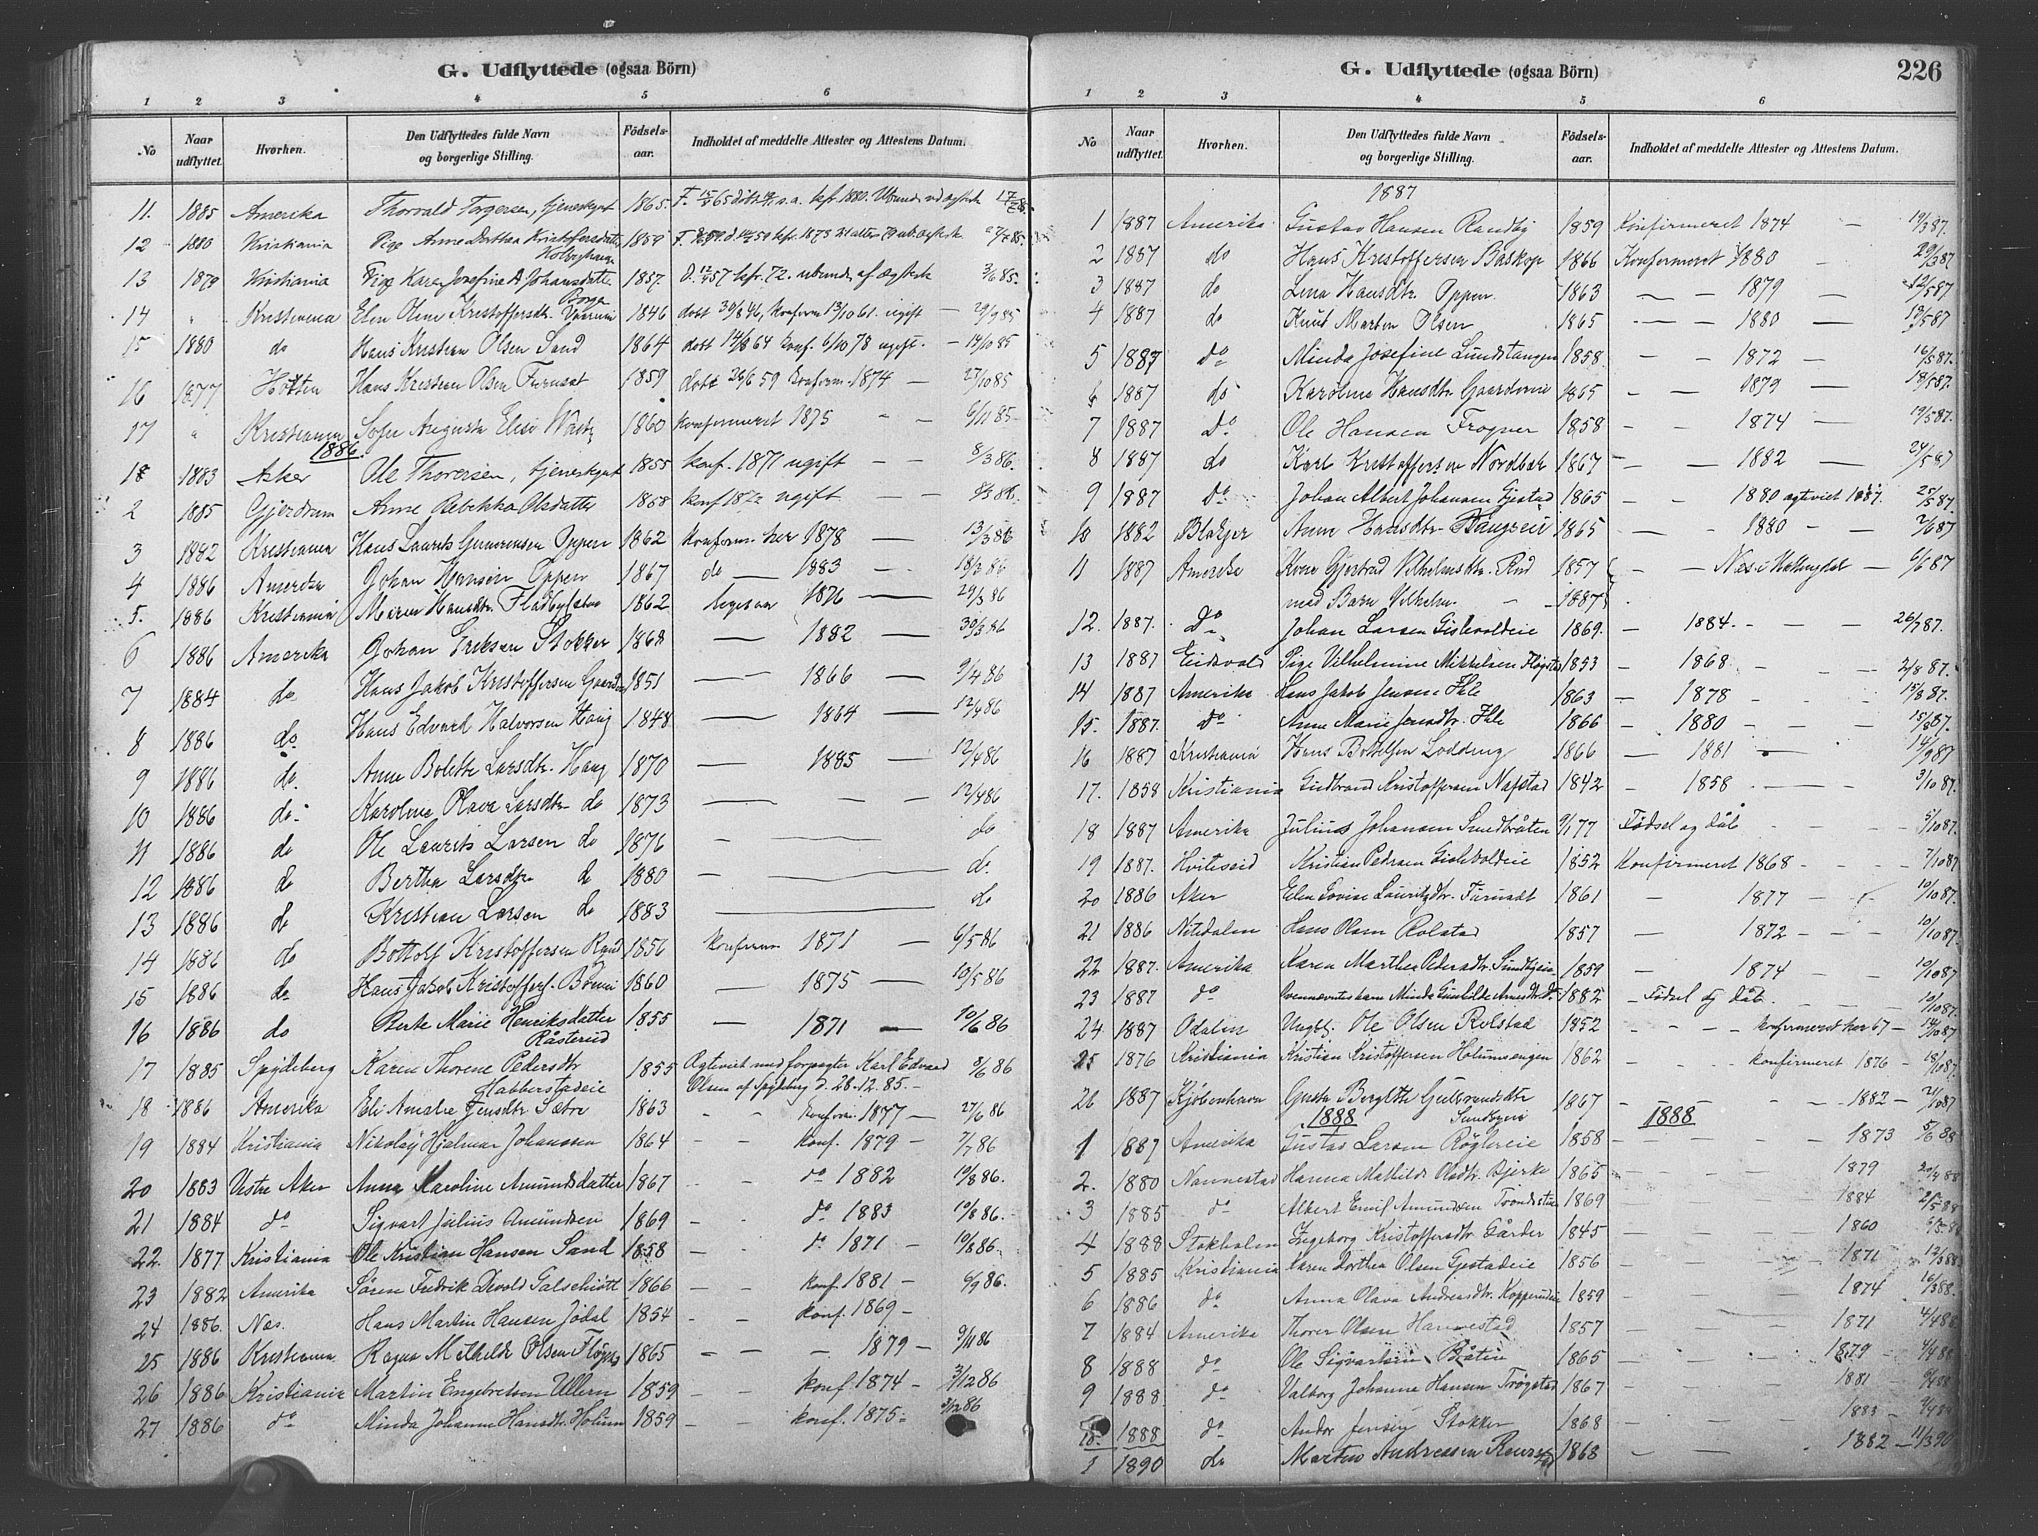 G. Udflyttede (ogsaa Börn)
1 2 3 4 5 6
No | Naar udflyttet. | Hvorhen. | Den Udflyttedes fulde Navn og borgerlige Stilling. | Födsels-aar. | Indholdet af meddelte Attester og Attestens Datum.
11. 1885 Amerika Thorvald Torgersen, tjenestegut 1865.
12 1880 Kristiania Pige Anne Dorthea Kristoffersdatter 1859
13 1879 Kristiania Pige Karen Josefine Johansdatter 1857. 3/6 85.
14 " Kristiania Elen Oline Kristoffersdtr. 1846 døbt 30/8 46, konform 13/10 61. ugift — 29/9 85
15 1880 do Hans Kristian Olsen Sand 1864 døbt 14/8 64 konf. 6/10 78 ugift. — 14/10 85
16 1877 Hans Kristian Olsen Furuset 1859 døbt 26/6 59 konform. 1874 — 27/10 85
17 " Kristiania Sofie Augusta Elise 1860 konfirmeret 1875 " 6/11 85
1886
1 1883 Asker Ole Thoresen, tjenestegut 1855 konf. 1871 ugift — — 8/3 86.
2 1885 Gjerdrum Anne Rebekka Olsdatter 1858 ugift — — 8/3 86.
3 1882 Kristiania Hans Laurits Gunerensen Oppen 1862 konform. her 1878 — 13/3 86
4 1886 Amerika Johan Hansen Oppen 1867 do — 1883 18/3 86
5. 1886 Kristiania Maren Hansdtr. 1862 ligesaa 1876 — 29/3 86
6 1886 Amerika Johan Eriksen Stokker 1868 — 1882 — 30/3 86
7 1884 do Hans Jakob Kristoffersen 1851 — 1866 — 9/4 86
8 1886 do. Hans Edvard Halvorsen Haug 1848 — 1864 — 12/4 86
9 1886 do. Anne Bolette Larsdtr. Haug 1870 — 1885 — 12/4 86
10 1886 do. Karoline Olava Larsdtr do 1873 — — — 12/4 86
11 1886 do Ole Laurits Larsen do 1876 — do
12 1886 do Bertha Larsdtr do 1880 — do.
13 1886 do Kristian Larsen do 1883 — do
14 1886 do Bottolf Kristoffersen Rud 1856 konform 1871 — 6/5 86
15 1886 do Hans Jakob Kristoffers. 1860 — 1875 — 10/5 86
16 1886 do Berte Marie Henriksdatter 1855 — 1871 — 10/6 86
Råsterud
17 1885 Spydeberg Karen Thorene Pedersdtr 1855 Ægteviet med forpagter Karl Edvard 8/6 86
Habberstadeie Olsen af Spydeberg d. 28-12. 85. —
18 1886 Amerika Eli Amalie Jensdtr. Sætre 1863 - - konform. 1877 — 27/6 86
19 1884 Kristiania Nikolay Hjalmar Johansen 1864 - - konf. 1879 — 7/7 86
20 1883 Vestre Aker Anna Karoline Amundsdatter 1867 - - do 1882 — 10/8 86.
21 1884 do Sigvart Julius Amundsen 1869 - - do 1883 — 10/8 86.
22. 1877 Kristiania Ole Kristian Hansen Sand 1858 - - do 1871 — 10/8 86.
23 1882 Amerika Søren Fredrik Galschiøtt 1866 - - konf. 1881 — 6/9 86.
24 1886. Nes. Hans Martin Hansen Jødal 1854 - - konf. 1869 —
25 1886 Kristiania Ragna Mathilde Olsen 1865 — — — 1879 — 9/11 86
26 1886 Kristiania Martin Engebretsen Ullern 1859 - - konf. 1874 — 3/12 86
27 1886 do Minda Johanne Hansdtr. Holum 1859 - - konf. 1875 — 3/12 86

G. Udflyttede (ogsaa Börn) 226
1 2 3 4 5 6
No | Naar udflyttet. | Hvorhen. | Den Udflyttedes fulde Navn og borgerlige Stilling. | Födsels-aar. | Indholdet af meddelte Attester og Attestens Datum.
1887
1 1887 Amerika Gustav Hansen Randby 1859 Konfirmeret 1874 — 19/3 87.
2 1887 do Hans Kristoffersen Båskop 1866 Konfirmeret 1880 — 29/3 87
3 1887 do Lina Hansdtr. Oppen 1863 — — 1879 — 12/5 87
4 1887 do Knut Martin Olsen 1865 — — 1880 — 12/5 87
5 1887 do Minda Josefine Lundstangen 1858 - — 1872 — 16/5 87.
6 1887 do Karoline Hansdtr. 1865 - — 1879 — 18/5 87.
7 1887 do Ole Hansen Frogner 1858 — — 1874 — 19/5 87.
8 1887 do Karl Kristoffersen Nordbæk 1867 — — 1882 — 24/5 87
9 1887 do Johan Albert Johansen Gjestad 1865 — — 1880 ægteviet 1887. 25/5 87.
10 1882 Blakjer Anne Hansdtr. 1865 — — 1880 — 2/6 87
11 1887 Amerika Kone Gjertrud Vilhelmsdtr. Rud 1857 — — Nes i Hallingdal — 6/6 87
med Barn Vilhelm. — 1887
12. 1887. do Johan Larsen Gislevoldeie 1869. — 1884. — — 26/7 87.
13 1887 Eidsvold Pige Vilhelmine Mikkelsen 1853 — 1868 — 2/8 87.
14 1887 Amerika Hans Jakob Jensen Ihle 1863 — 1878 — 15/8 87.
15. 1887. do Anne Marie Jensdtr. Ihle 1866 — 1880 — 15/8 87.
16 1887 Kristiania Hans Bottelsen Lodding 1866 — 1881 — 14/9 87
17. 1858 Kristiania Gudbrand Kristoffersen Nafstad 1842 — 1858 — 3/10 87.
18 1887 Amerika Julius Johansen Sundbråten 9/1 77 Fødsel og dåb — 5/10 87.
19 1887. Hvitesøid Kristian Pedersen Gislevoldeie 1852 Konfirmeret 1868 — 7/10 87
20 1886 Aker Elen Lovise Lauritzdtr. Furuset 1861 — 1877 — 10/10 87.
21 1886 Nitdalen Hans Olsen Rolstad 1857 — 1872 — — 10/10 87.
22 1887. Amerika Karen Marthea Pedersdtr. 1859 — 1874 — — 10/10 87
23 1887 do Minda Gunhilde 1882 - Fødsel og dåb. — 10/10 87.
24 1887 Odalen Ungk. Ole Olsen Rolstad 1852 - - - konfirmeret her 67 — 14/10 87
25 1876 Kristiania Kristian Kristoffersen Holumsengen 1862 - - konfirmeret 1876 — 18/10 87.
26 1887 Kjøbenhavn Gusta Bergitte Gulbrandsdtr 1867 - - - 1882 — 24/10 87
1888 1888
1 1887 Amerika Gustav Larsen 1858 — — 1873 5/6 88
2. 1880 Nannestad Hanna Mathilde Olsdtr. Bjerke 1865 — — 1879 20/4 88
3 1885 do Albert Emil Amundsen 1869 — — 1884 2/5 88
4 1888 Stokholm Ingeborg Kristoffersdtr. Gårder 1845 — — 1860
5 1885 Kristiania Karen Dorthea Olsen Gjestadeie 1856 — — 1871 12/3 88
6 1886 do Anna Olava Andreasdtr. Kopperudeie 1859 — — 1874 16/3 88.
7 1884 Amerika Thorer Olsen Hannestad 1857 — — 1871 4/4 88
8 1888 do Ole Sigvartsen Bråtin 1865 — — 1879 — 4/4 88
9 1888 do Valborg Johanne Hansen Trøgstad 1867 — — 1881 — 9/4 88
10. 1888 do Andor Jensen Stokker 1868 — — 1883 — 9/4 88
1 1890 do Martin Andreassen 1868 — — 1882 — 11/3 90